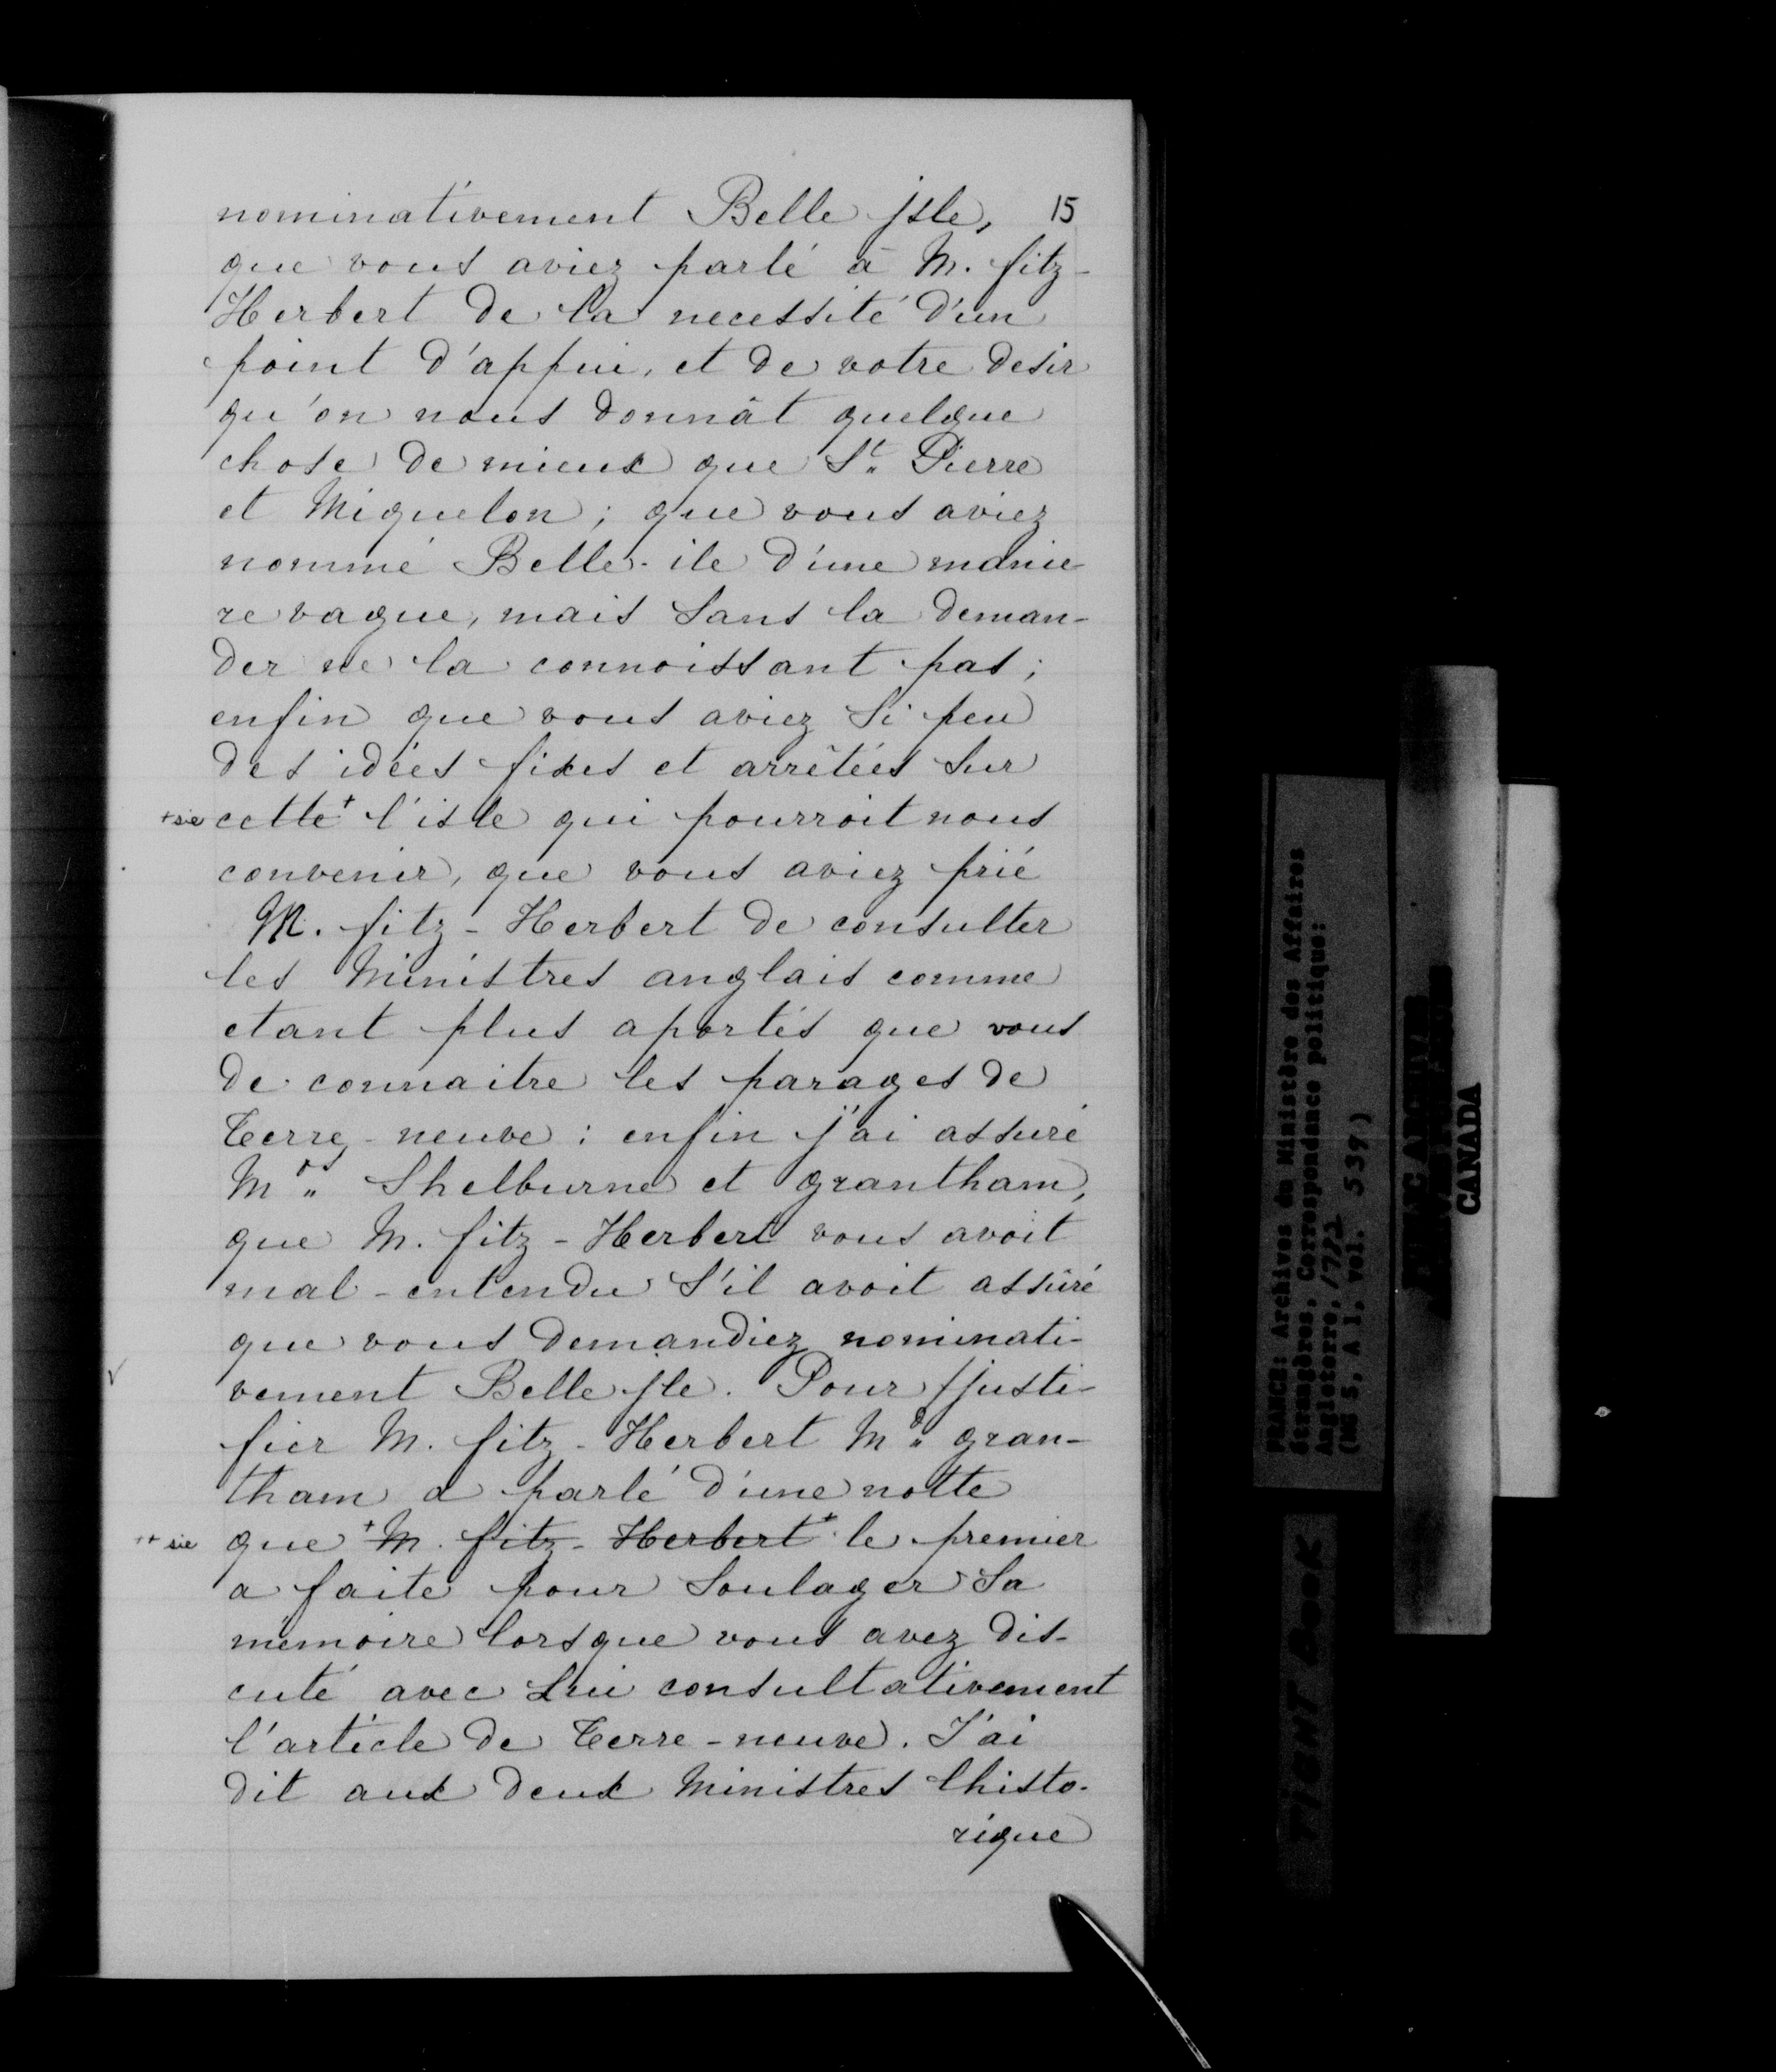 nominativement Belle jsle, 15
que vous aviez parlé à M. fitz-
Herbert de la necessité d'un
point d'appui, et de votre desir
qu'on nous donnât quelque
chose de mieux que St. Pierre
et Miquelon ; que vous aviez
nommé Belle-ile d'une manie
re vague, mais sans la deman-
der ne la connoissant pas ;
enfin que vous aviez si peu
des idées fixes et arrêtées sur
+ sic cette + l'isle qui pourroit nous
convenir, que vous aviez prié
M. fitz-Herbert de consulter
les Ministres anglais comme
etant plus aportés que vous
de connaitre les parages de
Terre-neuve : enfin j'ai assuré
Mds. Shelburne et grantham,
que M. fitz-Herbert vous avoit
mal-entendu s'il avoit assûré
que vous demandiez nominati-
vement Belle jle. Pour justi-
fier M. fitz-Herbert Md. gran-
tham a parlé d'une notte
++ sic que + M. fitz-Herbert + le premier
a faite pour soulager sa
mémoire lorsque vous avez dis-
cuté avec Lui consultativement
l'article de Terre-neuve. J'ai
dit aux deux Ministres lhisto-
rique
FRANCE: Archives du Ministère des Affaires
étrangères, Correspondance politique:
Angleterre,
(MG 5, A 1, vol. 539)
CANADA